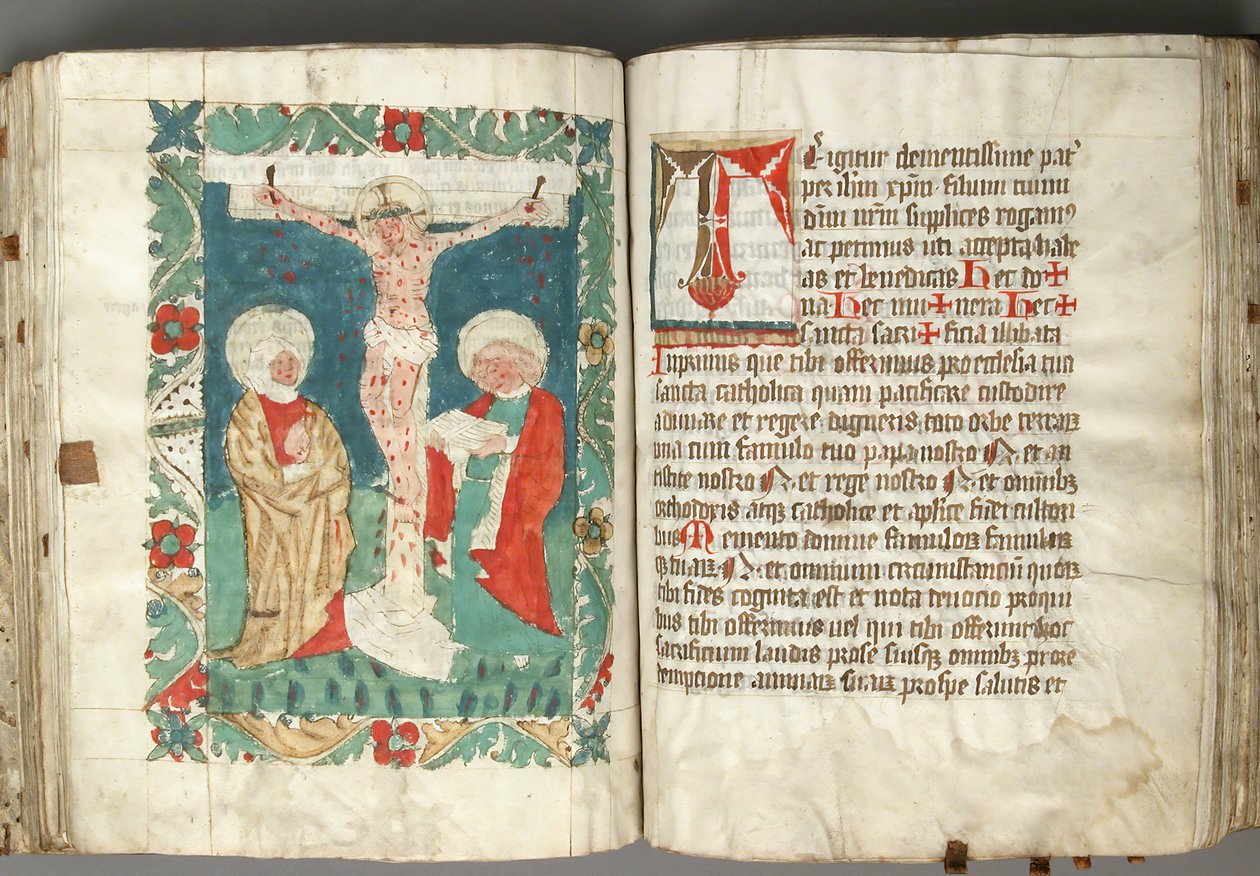 T E igitur clementissime pat̾
per ih̄m xp̄m filium tuum
dn̄m nr̄m supplices rogam⁹
ac petimus uti accepta habe
as et benedicas Hec do✚
na Hec mu✚nera Hec✚
sancta sacri✚ficia illibata
Inprimis que tibi offerimus pro ecclesia tua
sancta catholica quam pacificare custodire
adunare et regere digneris toto orbe terraꝝ
vna cum famulo tuo papa nostro N. et an
tistite nostro N. et rege nostro N. et omnibꝫ
orthodoxis atqꝫ catholice et aplice fidei cultori
bus Memento domine famuloꝝ famulaꝝ
qꝫ tuaꝝ N. et omnium circumstanciū quoꝝ
tibi fides cognita est et nota deuocio pro qui
bus tibi offerimus uel qui tibi offerunt hoc
sacrificium laudis pro se suisqꝫ omnibꝫ pro re
dempcione animaꝝ suaꝝ pro spe salutis et